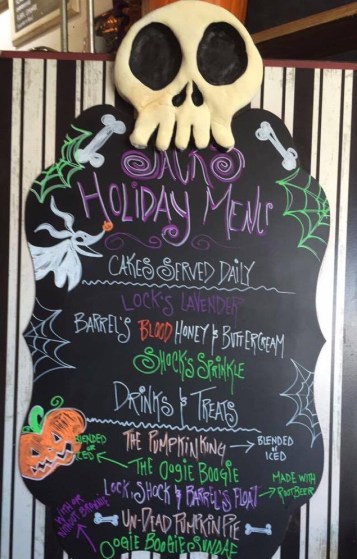 Jack's
Holiday Menu
Cakes Served Daily
Lock's Lavender
Barrel's Blood Honey & Buttercream
Shock's Sprinkle
Drinks & Treats
Blended or Iced ← The Pumpkin King → Blended or Iced
← The Oogie Boogie
Lock, Shock & Barrel's Float → Made with Root Beer
With or Without
Un-Dead Pumpkin Pie
Oogie Boogie Sundae